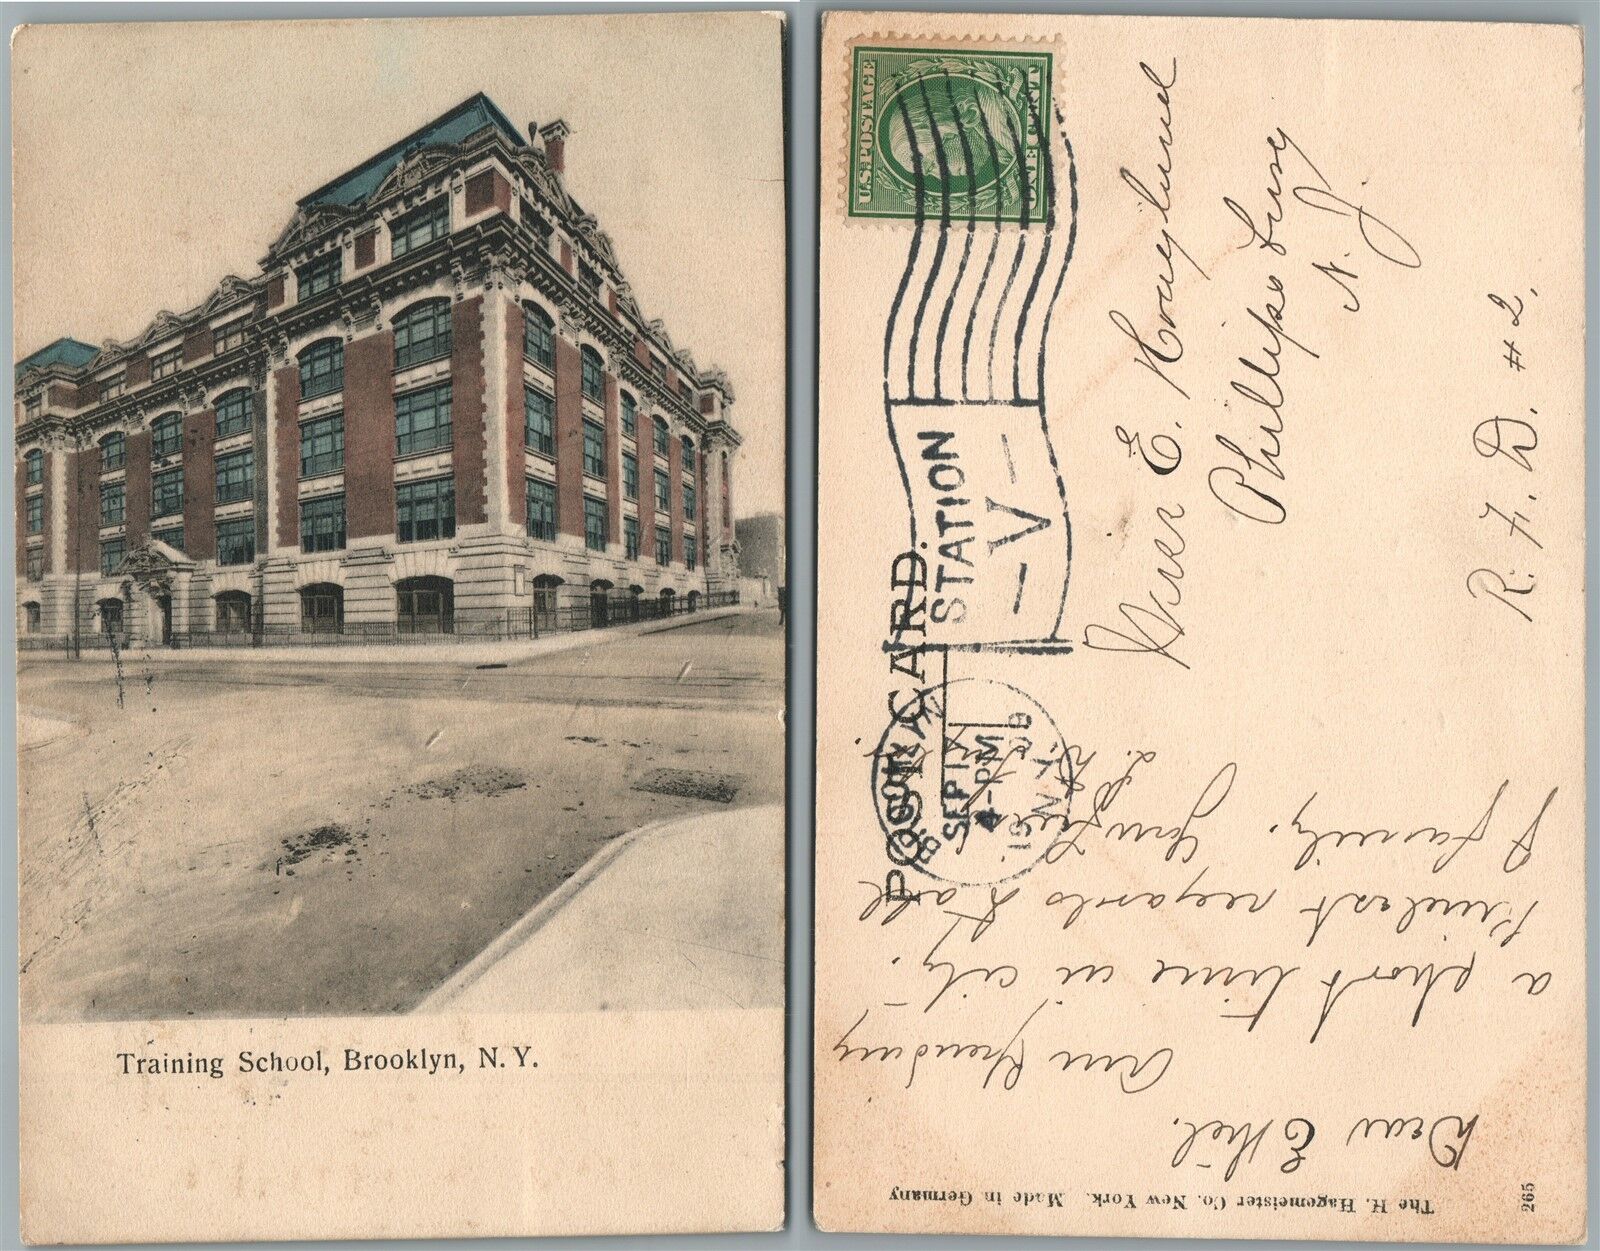 Training School, Brooklyn, N.Y.
U.S. POSTAGE
ONE CENT
POST CARD.
STATION
V
BROOKLYN
SEP 17
4-PM
1909
N.Y.
Miss E. Hoagland
Phillipsburg
N.J.
R.F.D. #2.
Dear Ethel.
Am spending
a short time in city.
Kindest regards to all
family.
Your
L.H.
The H. Hagemeister Co. New York. Made in Germany
265